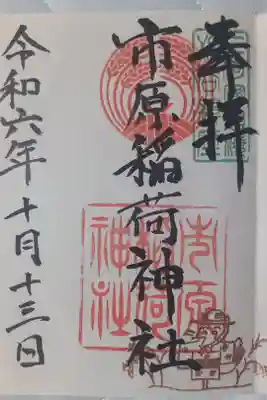 奉拝
市原稲荷神社
令和六年十月十三日
市原
稲荷
神社